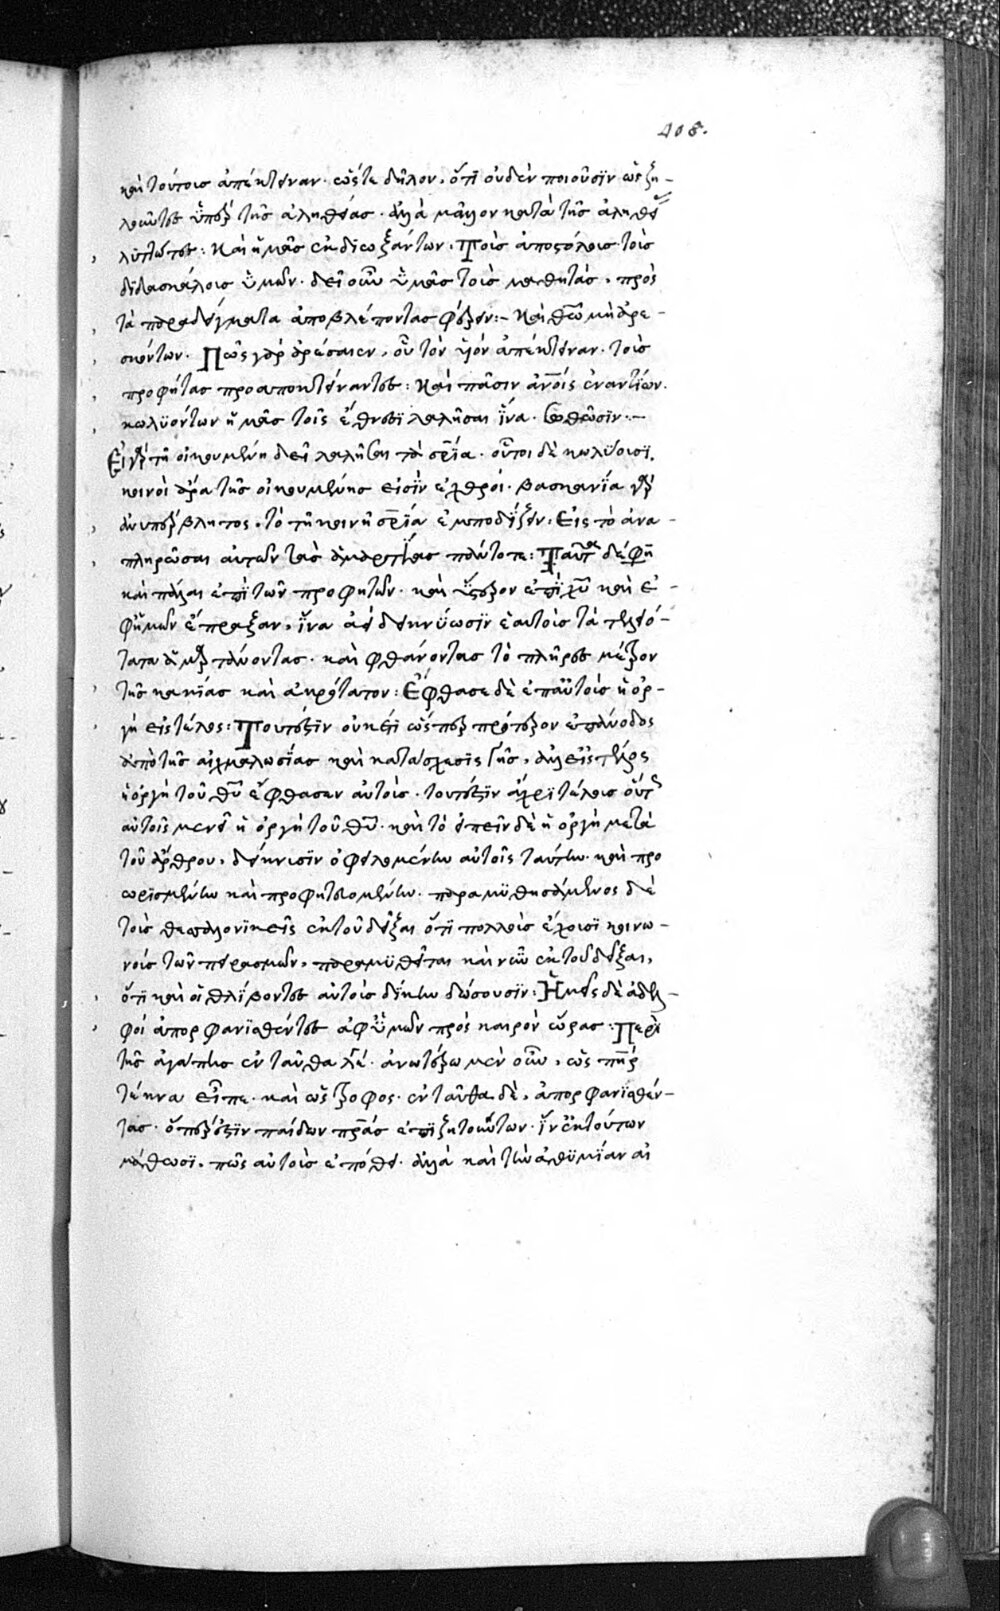 408.
καὶ τούτοις ἀπέκτειναν. ὥστε δῆλον, ὅτι οὐδὲν ποιοῦσιν ὡς ζη-
λοῦντες ὑπὲρ τῆς ἀληθείας. ἀλλὰ μᾶλλον κατὰ τῆς ἀληθεί
λυττῶντες: Καὶ ἡμᾶς ἐκδιωξάντων. Τοὺς ἀποστόλους τοὺς
διδασκάλους ὑμῶν. δεῖ οὖν ὑμᾶς τοὺς μαθητὰς, πρὸς
τὰ παραδείγματα ἀποβλέποντας φέρειν:- Καὶ θεῷ μὴ ἀρε-
σκόντων. Πῶς γὰρ ἀρέσαιεν, οὗ τὸν υἱὸν ἀπέκτειναν. τοὺς
προφήτας προαποκτείναντες: Καὶ πᾶσιν ἀνοις ἐναντίων.
κωλυόντων ἡμᾶς τοῖς ἔθνεσι λαλῆσαι ἵνα. σωθῶσιν.-
Εἰ γὰρ τῇ οἰκουμένῃ δεῖ λαλῆσαι τὰ σρία. οὗτοι δὲ κωλύουσι,
κοινοὶ ἄρα τῆς οἰκουμένης εἰσὶν ἐχθροί. βασκανία γὰρ
ἀνυπέρβλητος, τὸ τῇ κοινῇ σρία ἐμποδίζειν. Εἰς τὸ ἀνα-
πληρῶσαι αὐτῶν τὰς ἁμαρτίας πάντοτε: Ταῦτα δέ φη
καὶ πάλαι ἐπὶ τῶν προφητῶν. καὶ ὕστερον ἐπὶ χυ καὶ ἐ-
φ' ἡμῶν ἔπραξαν, ἵνα ἀεὶ δεικνύωσιν ἑαυτοὺς τὰ τελεό-
τατα ἁμαρτάνοντας. καὶ φθάνοντας τὸ πλῆρες μέτρον
τῆς κακίας καὶ ἀκρότατον: Ἔφθασε δὲ ἐπ' αὐτοὺς ἡ ὀρ-
γὴ εἰς τέλος: Τουτέστιν οὐκέτι ὥσπερ πρότερον ἐπάνοδος
ἀπὸ τῆς αἰχμαλωσίας καὶ κατάσχεσις γῆς, ἀλλ' εἰς τέλος
ἡ ὀργὴ τοῦ θυ ἔφθασεν αὐτοὺς. τουτέστιν ἄχρι τέλους οὕτω
αὐτοῖς μενεῖ ἡ ὀργὴ τοῦ θυ. καὶ τὸ εἰπεῖν δὲ ἡ ὀργὴ μετὰ
τοῦ ἄρθρου, δείκνυσιν ὀφειλομένην αὐτοῖς ταύτην. καὶ προ
ωρισμένην καὶ προφητευομένην. παραμυθησάμενος δὲ
τοὺς θεσσαλονικεῖς ἐκ τοῦ δεῖξαι ὅτι πολλοὺς ἔχουσι κοινω-
νοὺς τῶν πειρασμῶν, παραμυθεῖται καὶ νῦν ἐκ τοῦ δεῖξαι,
ὅτι καὶ οἱ θλίβοντες αὐτοὺς δίκην δώσουσιν: Ἡμεῖς δὲ ἀδελ-
φοὶ ἀπορφανισθέντες ἀφ' ὑμῶν πρὸς καιρὸν ὥρας: Περὶ
τῆς ἀγάπης ἐνταῦθα λέγει. ἀνωτέρω μὲν οὖν, ὡς πὴρ
τέκνα εἶπε. καὶ ὡς τροφὸς. ἐνταῦθα δὲ, ἀπορφανισθέν-
τας. ὅπερ ἐστὶν παίδων πρας ἐπιζητούντων. ἵν' ἐκ τούτων
μάθωσι, πῶς αὐτοὺς ἐπόθει. ἀλλὰ καὶ τὴν ἀθυμίαν αἰ